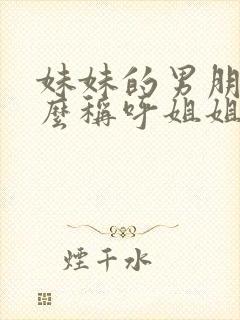 妹妹的男朋
麼稱呼姐姐
煙千水